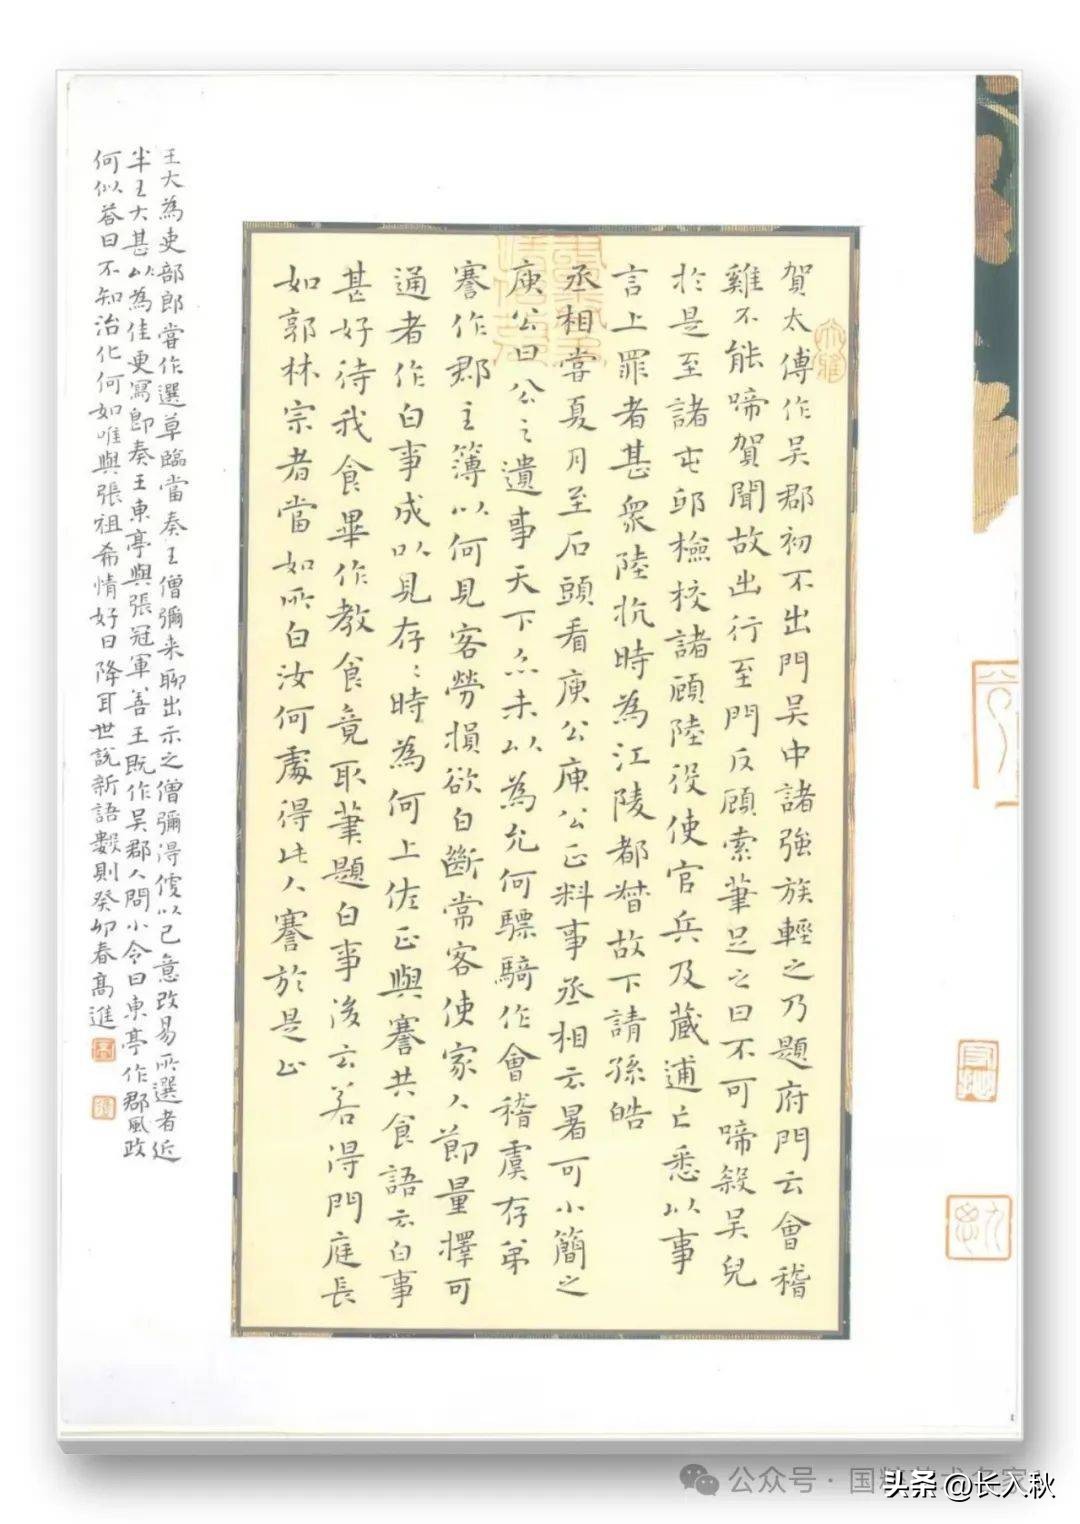 賀太傅作吳郡初不出門吳中諸強族輕之乃題府門云會稽
雞不能啼賀聞故出行至門反顧索筆足之曰不可啼殺吳兒
於是至諸屯邸檢校諸顧陸役使官兵及藏逋亡悉以事
言上罪者甚衆陸抗時為江陵都督故下請孫皓
丞相嘗夏月至石頭看庾公庾公正料事丞相云暑可小簡之
庾公曰公之遺事天下亦未以為允何驃騎作會稽虞存弟
謇作郡主簿以何見客勞損欲白斷常客使家人節量擇可
通者作白事成以見存〻時為何上佐正與謇共食語云白事
甚好待我食畢作教食竟取筆題白事後云若得門庭長
如郭林宗者當如所白汝何處得此人謇於是止
王大為吏部郎嘗作選草臨當奏王僧彌来聊出示之僧彌得便以己意改易所選者近
半王大甚以為佳更寫即奏王東亭與張冠軍善王既作吳郡人問小令曰東亭作郡風政
何似答曰不知治化何如唯與張祖希情好日隆耳世說新語數則癸卯春高進
大雅
公众号·国粹艺术名家
头条@长入秋